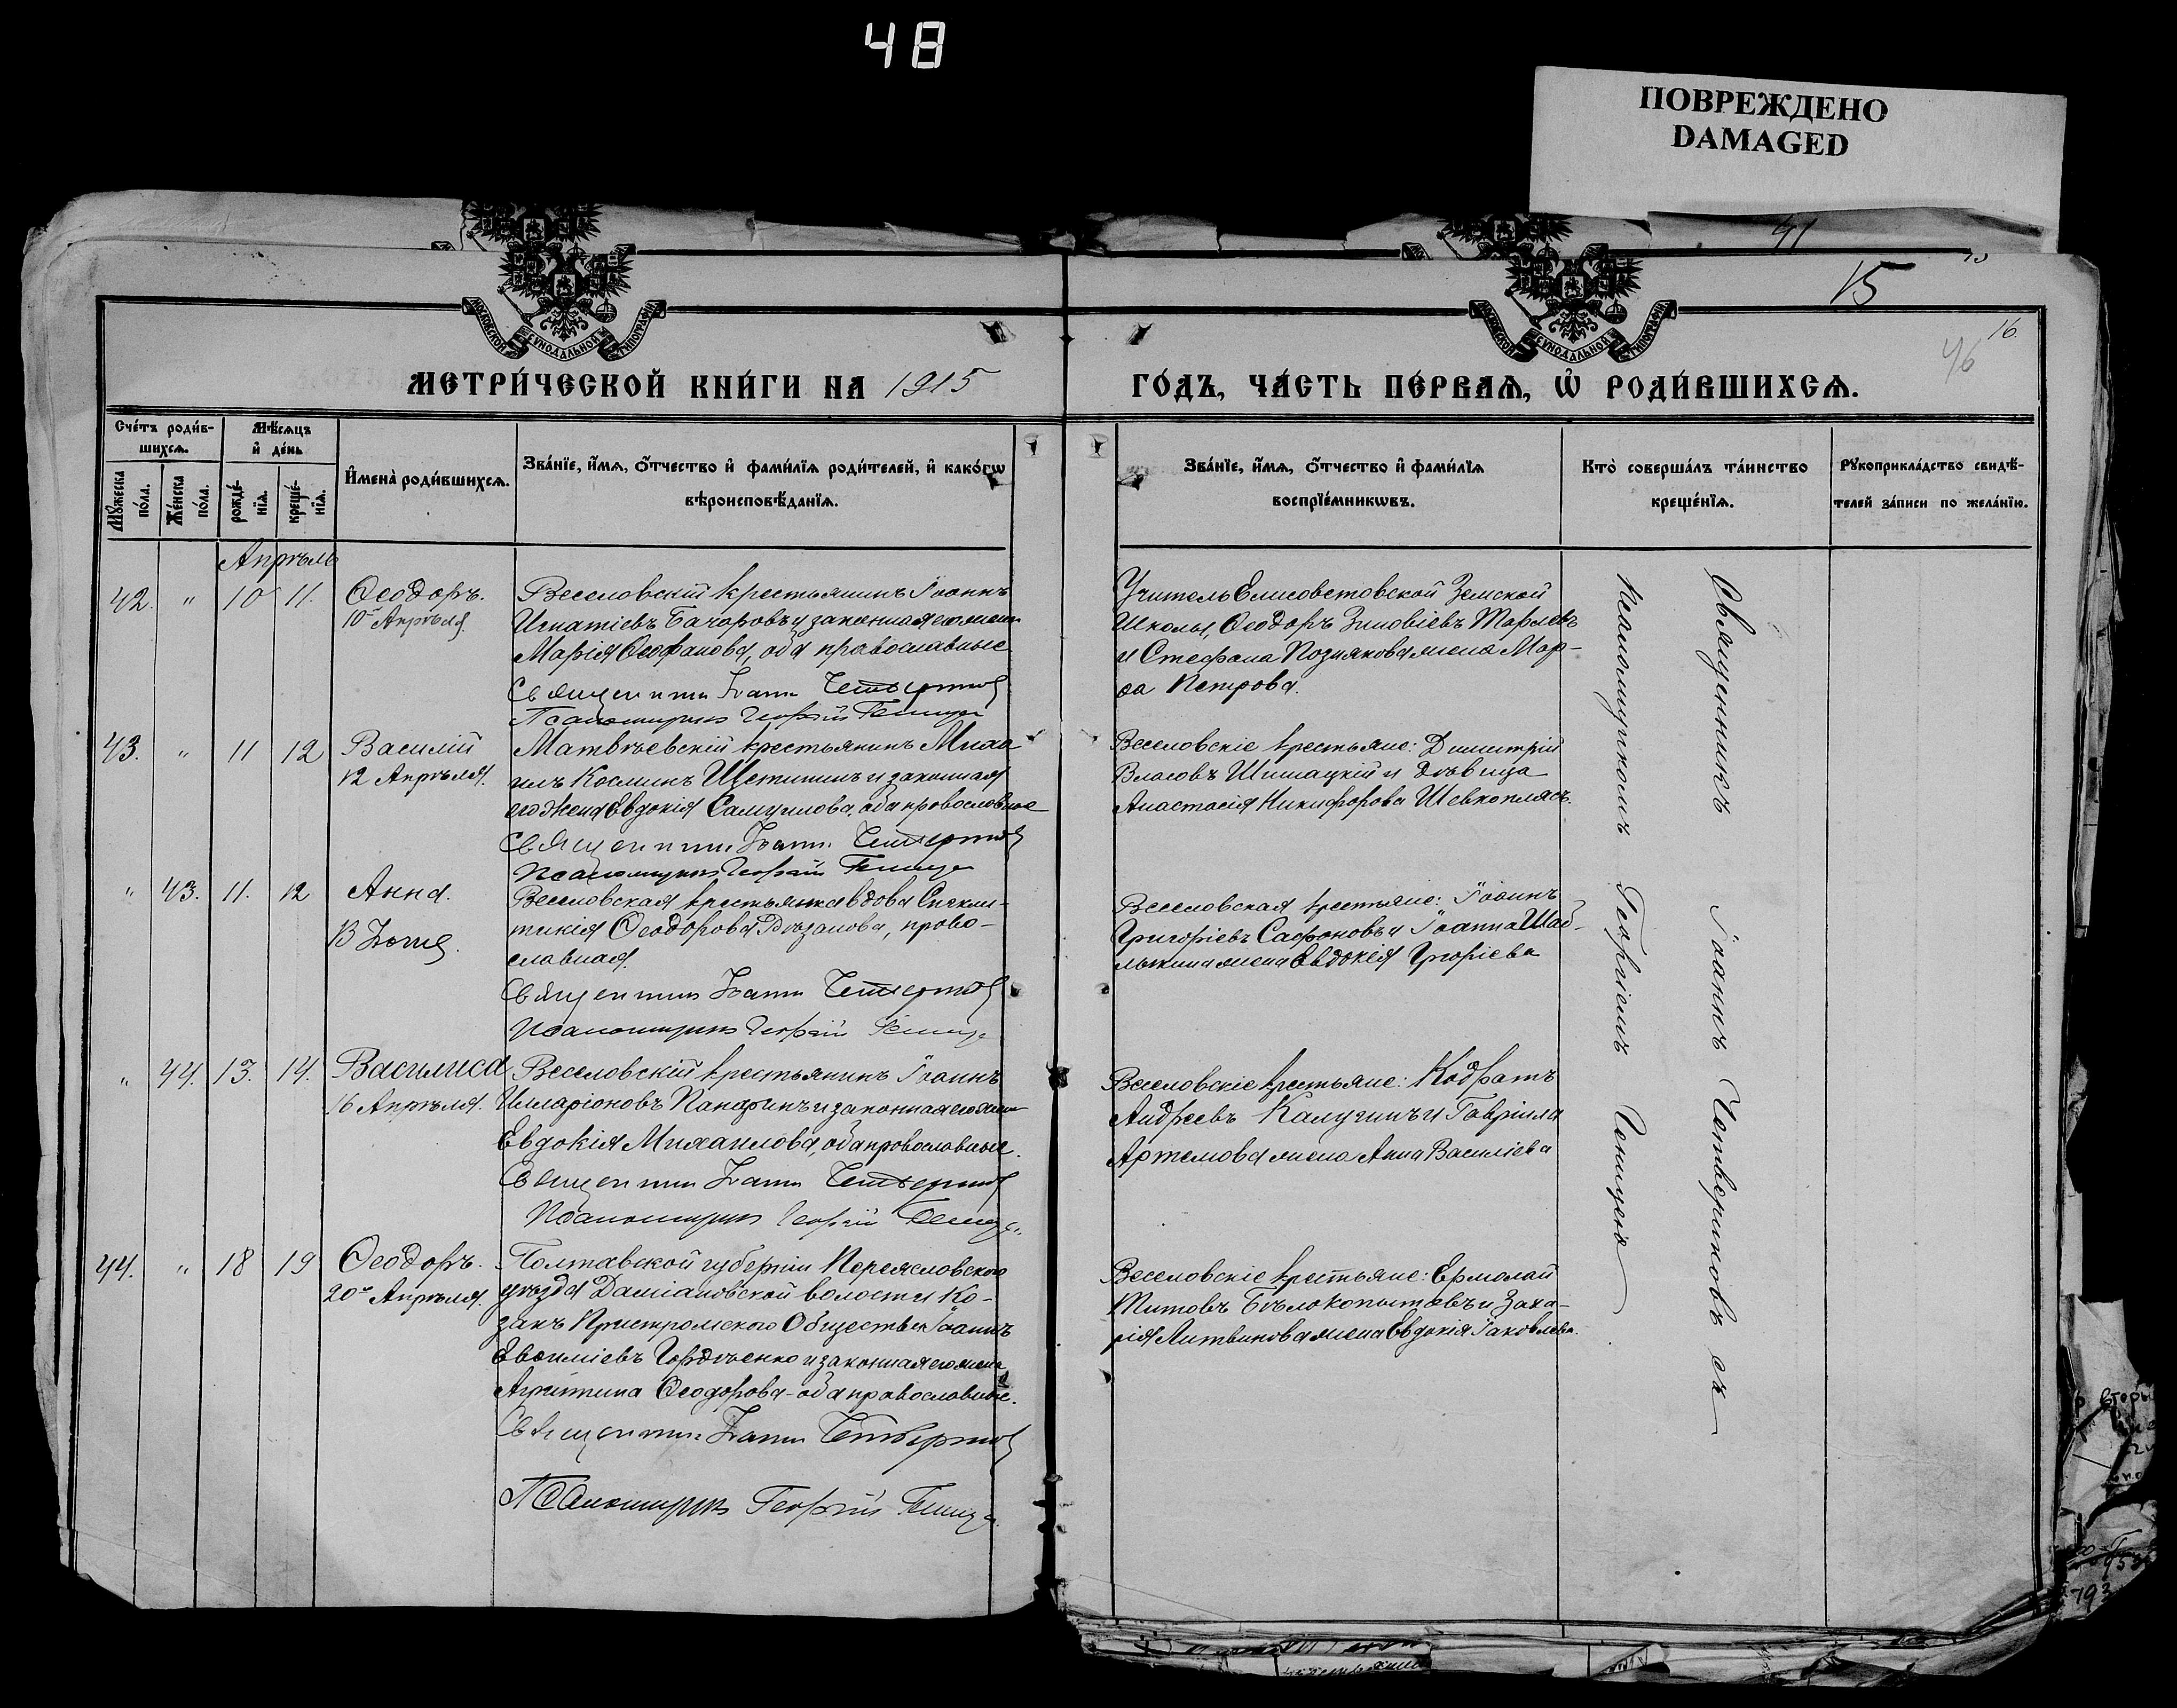 48
ПОВРЕЖДЕНО
DAMAGED
41
15
16.
46
МОСКОВСКОЙ СѴНОДАЛЬНОЙ ТИПОГРАФІИ
МОСКОВСКОЙ СѴНОДАЛЬНОЙ ТИПОГРАФІИ
МЕТРИ́ЧЕСКОЙ КНИ́ГИ НА 1915
ГО́ДЪ, ЧА́СТЬ ПЕ́РВАѦ, Ѡ҆ РОДИ́ВШИХСѦ.
Сче́тъ роди́в-
шихсѧ.
Мꙋ́жеска по́ла.
Же́нска по́ла.
Мѣ́сѧцъ
и҆ де́нь
рожде́-нїѧ.
креще́-нїѧ.
И҆мена̀ роди́вшихсѧ.
Зва́нїе, и҆́мѧ, ѻ҆́тчество и҆ фами́лїѧ роди́телей, и҆ како́гѡ
вѣроисповѣ́данїѧ.
Зва́нїе, и҆́мѧ, ѻ҆́тчество и҆ фами́лїѧ
воспрїе́мникѡвъ.
Кто̀ соверша́лъ та́инство
креще́нїѧ.
Рꙋкоприкла́дство свидѣ́-
телей за́писи по жела́нїю.
Апрѣль
42. " 10 11. Ѳеодоръ.
10го Апрѣля.
Веселовскій крестьянинъ Іоаннъ
Игнатіевъ Бачоровъ и законная его жена
Марія Ѳеофанова, оба православные
Священникъ Іоаннъ Четвериков
Псаломщикъ Георгій Геницe
Учитель Елисоветовской Земской
Школы, Ѳеодоръ Зиновіевъ
и Стефана Познякова жена Мар-
ѳа Петрова.
43. " 11 12 Василій
12 Апрѣля.
Матвѣевскій крестьянинъ Миха
илъ Косминъ Щетининъ и законная
его жена Евдокія Самуилова, оба православные
Священникъ Іоаннъ Четвериков
Псаломщикъ Георгій Геницe
Веселовскіе крестьяне: Димитрій
Власовъ Шишацкій и дѣвица
Анастасія Никифорова Шевкоплясъ.
" 43. 11. 12 Анна.
13 Іюня.
Веселовская крестьянка вдова Синкли-
тикія Ѳеодорова Рѣзанова, право-
славная.
Священникъ Іоаннъ Четвериков
Псаломщикъ Георгій Геницe
Веселовская крестьяне: Іоаннъ
Григоріевъ Сафоновъ и Іоанна Шаб-
лыкина жена Евдокія Григоріева
" 44. 13. 14. Василиса
16 Апрѣля.
Веселовскій крестьянинъ Іоаннъ
Илларіоновъ Панфинъ и законная его жена
Евдокія Михаилова, оба православные.
Священникъ Іоаннъ Четвериков
Псаломщикъ Георгій Геницe
Веселовскіе крестьяне: Кодратъ
Андреевъ Калугинъ и Гавріила
Артемова жена Анна Василіева
44. " 18 19 Ѳеодоръ.
20го Апрѣля.
Полтавской губерніи Переясловского
уѣзда Даміановской волости Ко-
закъ Пристромского Общества Іоаннъ
Евѳиміевъ Гордѣенко и законная его жена
Агриппина Ѳеодорова - оба православные.
Священникъ Іоаннъ Четвериков
Псаломщикъ Георгій Геницe
Веселовскіе крестьяне: Ермолай
Титовъ Бѣлокопытовъ и Заха-
рія Литвинова жена Евдокія Іаковлева.
Священникъ Іоаннъ Четвериковъ съ
псаломщикомъ Георгіемъ Геницею